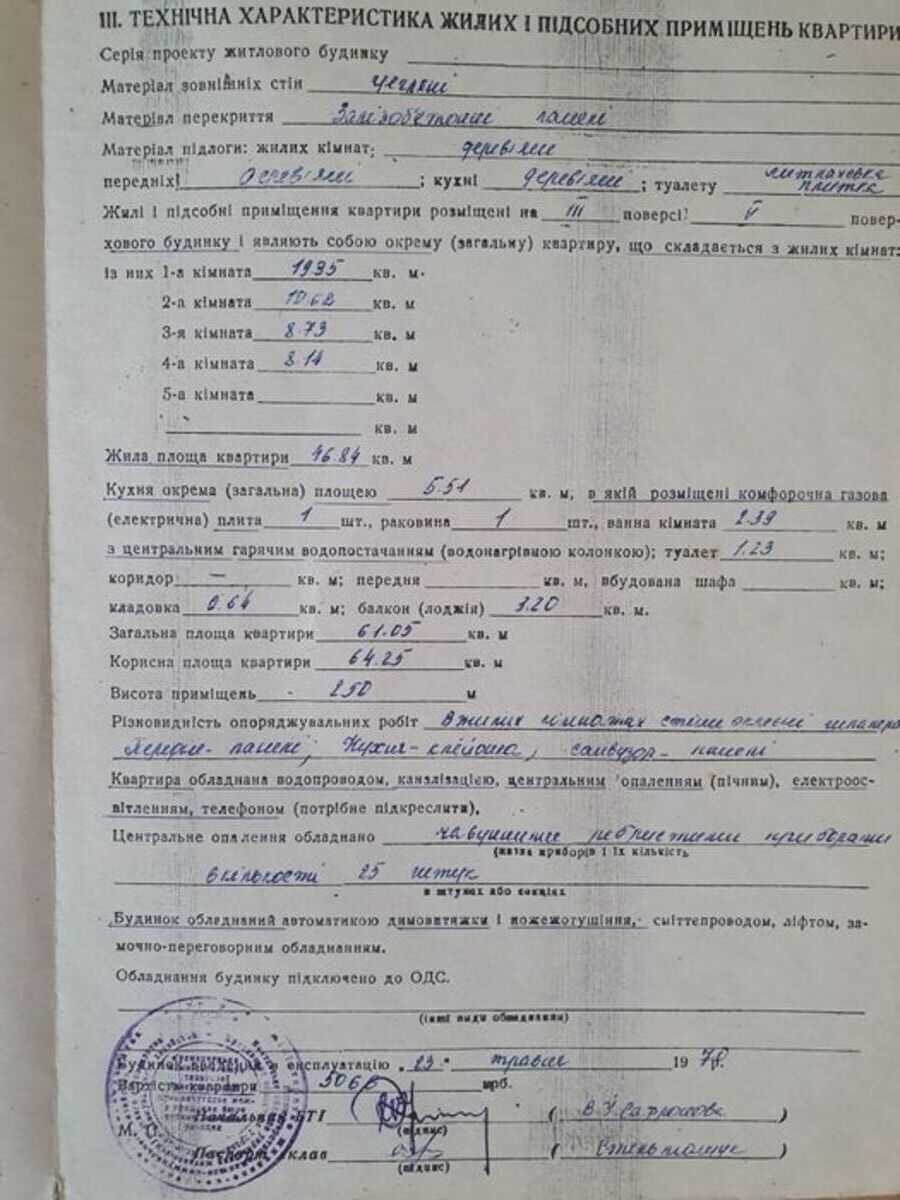 III. ТЕХНІЧНА ХАРАКТЕРИСТИКА ЖИЛИХ І ПІДСОБНИХ ПРИМІЩЕНЬ КВАРТИРИ
Серія проекту житлового будинку
Матеріал зовнішніх стін цегляні
Матеріал перекриття Залізобетонні панелі
Матеріал підлоги: жилих кімнат: дерев'яні
передніх: дерев'яні ; кухні дерев'яні ; туалету плитка
Жилі і підсобні приміщення квартири розміщені на III поверсі V повер-
хового будинку і являють собою окрему (загальну) квартиру, що складається з жилих кімнат:
із них 1-а кімната 19.35 кв. м.
2-а кімната 10.62 кв. м
3-я кімната 8.73 кв. м
4-а кімната 8.14 кв. м
5-а кімната кв. м
кв. м
Жила площа квартири 46.84 кв. м
Кухня окрема (загальна) площею 5.51 кв. м, в якій розміщені комфорочна газова
(електрична) плита 1 шт., раковина 1 шт., ванна кімната 2.39 кв. м
з центральним гарячим водопостачанням (водонагрівною колонкою); туалет 1.23 кв. м;
коридор — кв. м; передня кв. м, вбудована шафа кв. м;
кладовка 0.64 кв. м; балкон (лоджія) 3.20 кв. м.
Загальна площа квартири 61.05 кв. м
Корисна площа квартири 64.25 кв. м
Висота приміщень 250 м
Різновидність опоряджувальних робіт В жилих кімнатах стіни оклеєні шпалера
Передня - панелі; Кухня - клейонка, санвузол - панелі
Квартира обладнана водопроводом, каналізацією, центральним опаленням (пічним), електроос-
вітленням, телефоном (потрібне підкреслити),
Центральне опалення обладнано чавунними ребристими приборами
(назва приборів і їх кількість
в кількості 25 штук
в штуках або секціях
Будинок обладнаний автоматикою димовитяжки і пожежотушіння, сміттепроводом, ліфтом, за-
мочно-переговорним обладнанням.
Обладнання будинку підключено до ОДС.
(інші види обладнання)
Будинок введений в експлуатацію 23 " травня 1978.
Вартість квартири 5066 крб.
Начальник БТІ ( )
(підпис)
М. П.
Паспорт склав ( )
(підпис)